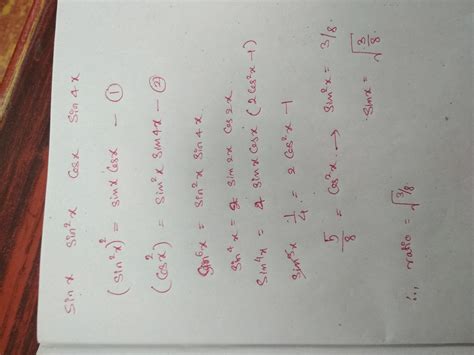 sinx sin²x cosx sin4x
(sin²x)² = sinx cosx — ①
(cosx)² = sin²x sin4x — ②
sin⁶x = sin²x sin4x
sin⁴x = 2 sin2x cos2x
sin⁴x = 4 sinx cosx (2cos²x-1)
1/4 = 2cos²x - 1
5/8 = cos²x → sin²x = 3/8
sinx = √3/8
∴ ratio = √3/8